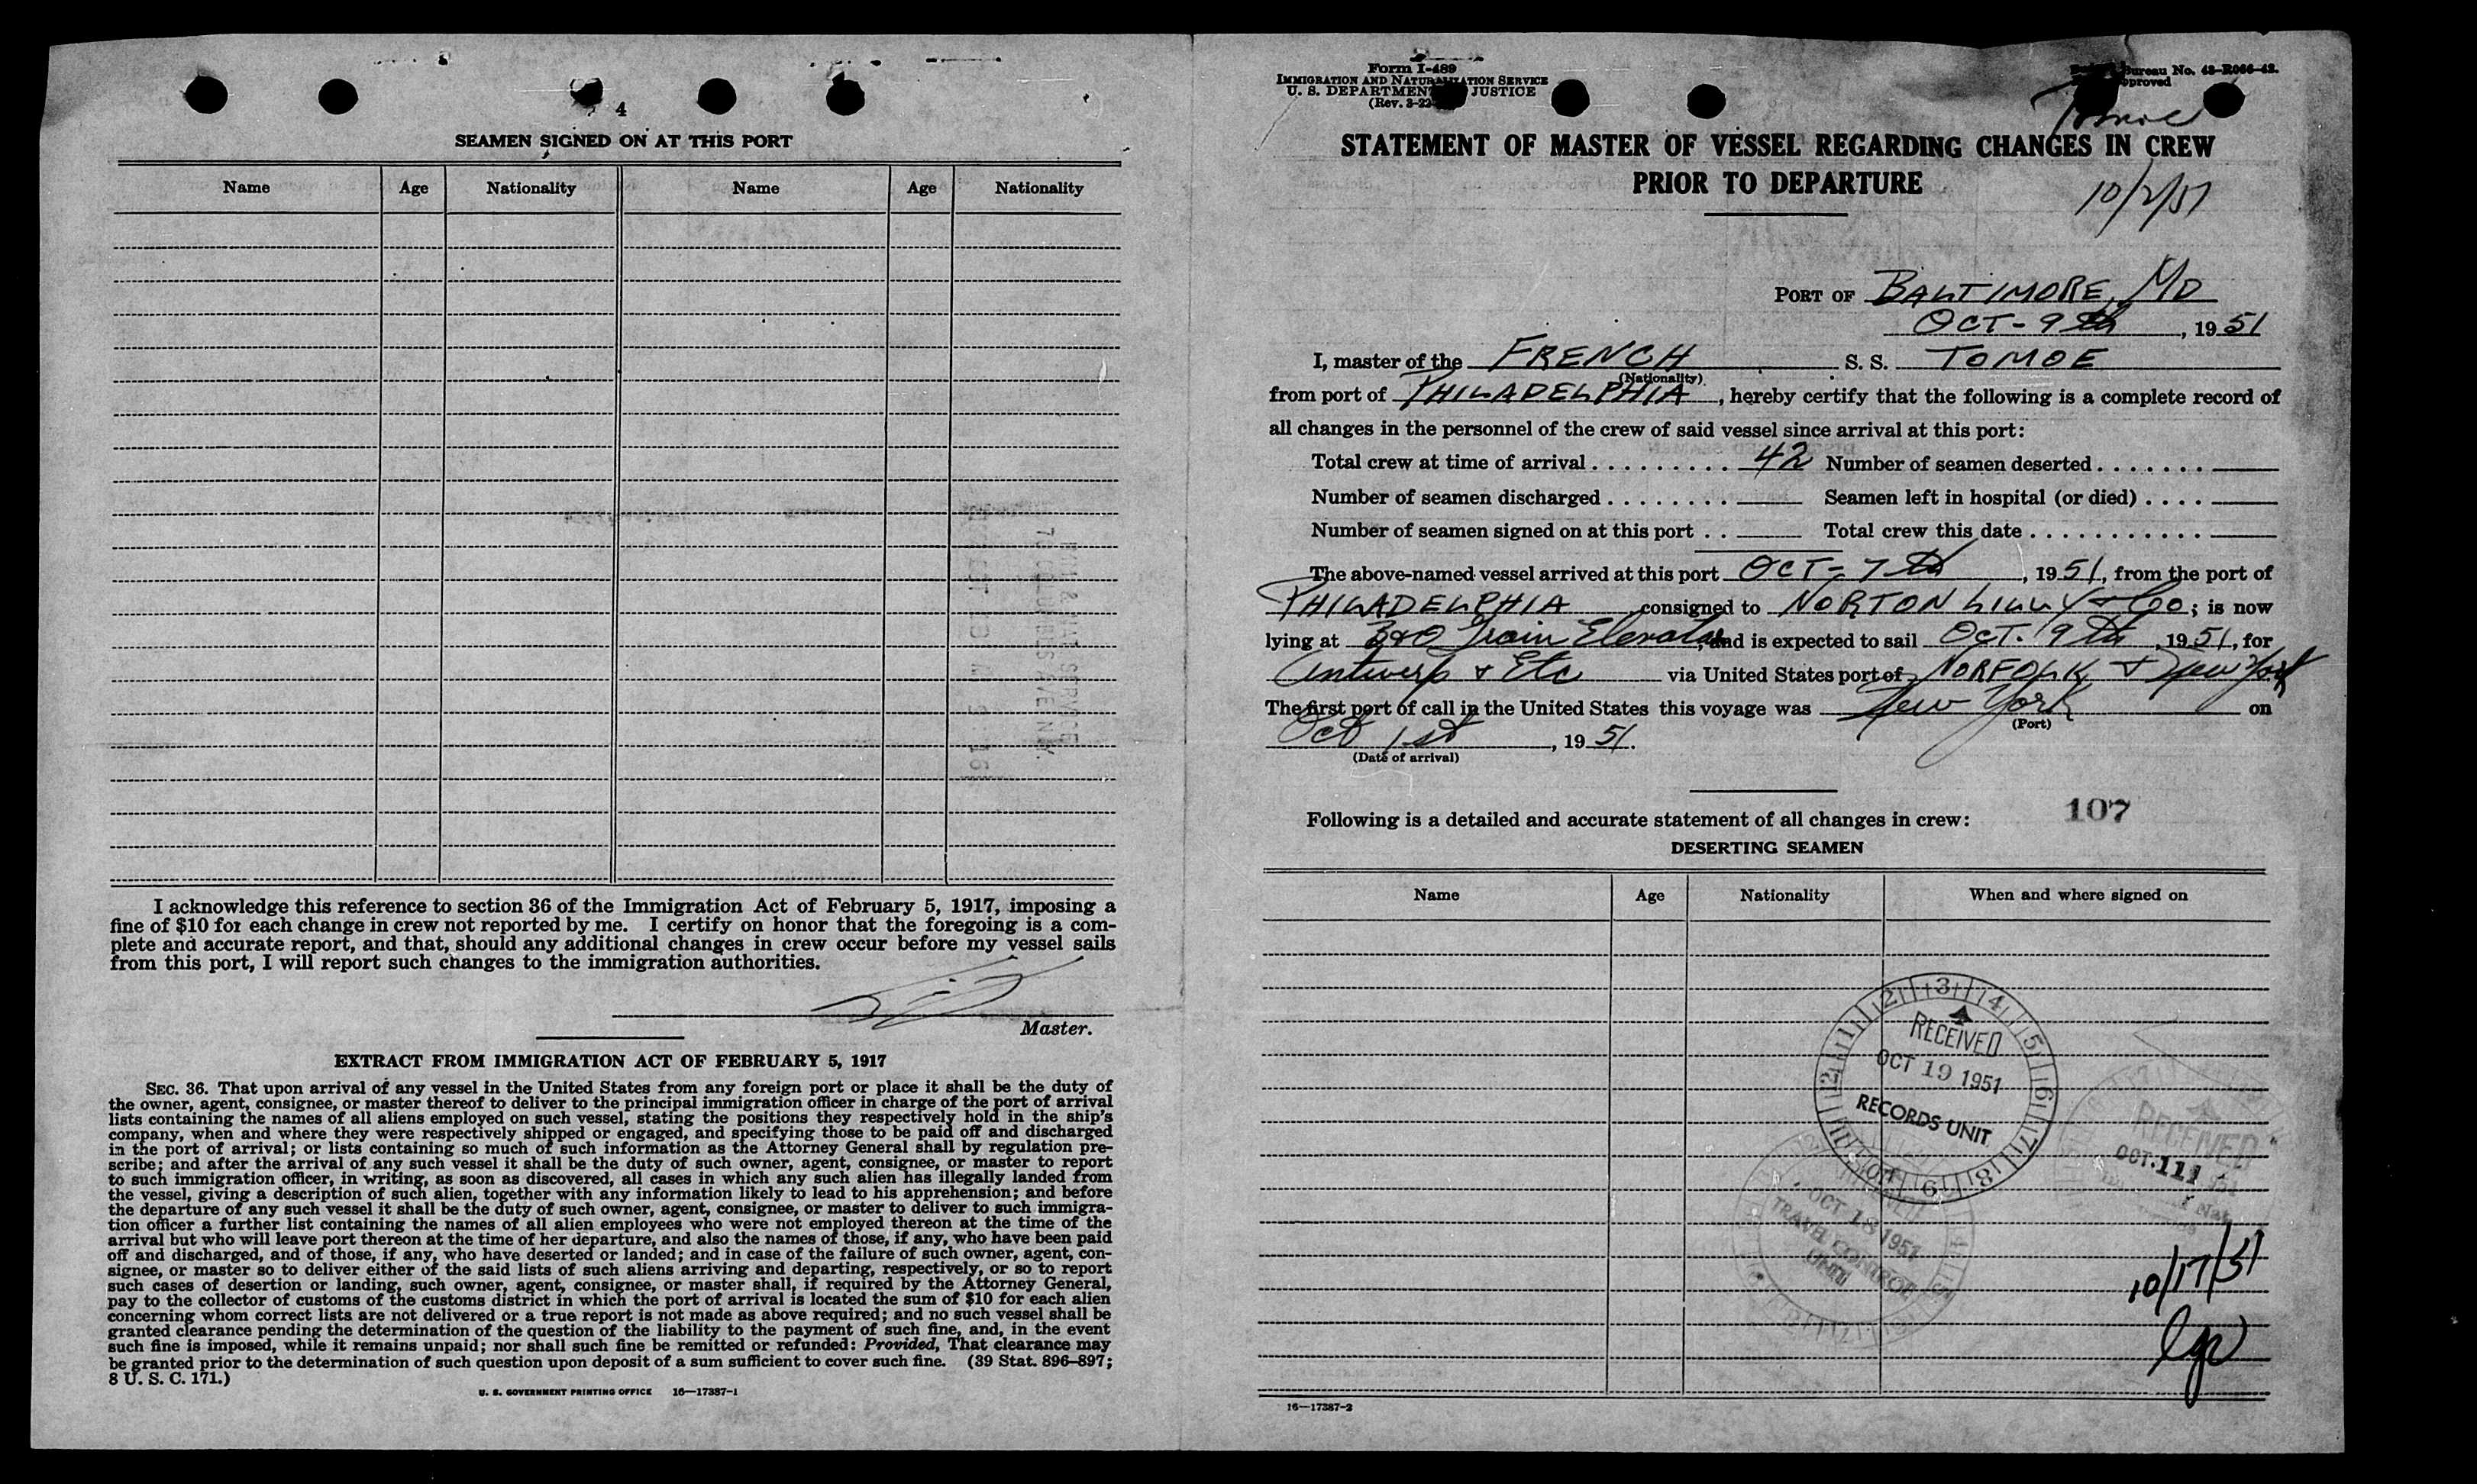 4
SEAMEN SIGNED ON AT THIS PORT
Name Age Nationality Name Age Nationality
I acknowledge this reference to section 36 of the Immigration Act of February 5, 1917, imposing a
fine of $10 for each change in crew not reported by me. I certify on honor that the foregoing is a com-
plete and accurate report, and that, should any additional changes in crew occur before my vessel sails
from this port, I will report such changes to the immigration authorities.
Master.
EXTRACT FROM IMMIGRATION ACT OF FEBRUARY 5, 1917
SEC. 36. That upon arrival of any vessel in the United States from any foreign port or place it shall be the duty of
the owner, agent, consignee, or master thereof to deliver to the principal immigration officer in charge of the port of arrival
lists containing the names of all aliens employed on such vessel, stating the positions they respectively hold in the ship's
company, when and where they were respectively shipped or engaged, and specifying those to be paid off and discharged
in the port of arrival; or lists containing so much of such information as the Attorney General shall by regulation pre-
scribe; and after the arrival of any such vessel it shall be the duty of such owner, agent, consignee, or master to report
to such immigration officer, in writing, as soon as discovered, all cases in which any such alien has illegally landed from
the vessel, giving a description of such alien, together with any information likely to lead to his apprehension; and before
the departure of any such vessel it shall be the duty of such owner, agent, consignee, or master to deliver to such immigra-
tion officer a further list containing the names of all alien employees who were not employed thereon at the time of the
arrival but who will leave port thereon at the time of her departure, and also the names of those, if any, who have been paid
off and discharged, and of those, if any, who have deserted or landed; and in case of the failure of such owner, agent, con-
signee, or master so to deliver either of the said lists of such aliens arriving and departing, respectively, or so to report
such cases of desertion or landing, such owner, agent, consignee, or master shall, if required by the Attorney General,
pay to the collector of customs of the customs district in which the port of arrival is located the sum of $10 for each alien
concerning whom correct lists are not delivered or a true report is not made as above required; and no such vessel shall be
granted clearance pending the determination of the question of the liability to the payment of such fine, and, in the event
such fine is imposed, while it remains unpaid; nor shall such fine be remitted or refunded: Provided, That clearance may
be granted prior to the determination of such question upon deposit of a sum sufficient to cover such fine. (39 Stat. 896–897;
8 U. S. C. 171.)
U. S. GOVERNMENT PRINTING OFFICE 16—17387-1
Form I-489
IMMIGRATION AND NATURALIZATION SERVICE
U. S. DEPARTMENT JUSTICE
(Rev. 3-22
Bureau No. 43-R066-42.
pproved
Tomoe
STATEMENT OF MASTER OF VESSEL REGARDING CHANGES IN CREW
PRIOR TO DEPARTURE
10/2/51
PORT OF BALTIMORE, MD
OCT-9th, 1951
I, master of the FRENCH S. S. TOMOE
(Nationality)
from port of PHILADELPHIA, hereby certify that the following is a complete record of
all changes in the personnel of the crew of said vessel since arrival at this port:
Total crew at time of arrival . . . . . . . . . 42 Number of seamen deserted . . . . . . .
Number of seamen discharged . . . . . . . . Seamen left in hospital (or died) . . . .
Number of seamen signed on at this port . . Total crew this date . . . . . . . . . . .
The above-named vessel arrived at this port OCT-7th, 1951, from the port of
PHILADELPHIA consigned to NORTON LILLY & Co; is now
lying at B&O Grain Elevator, and is expected to sail OCT. 9th, 1951, for
Antwerp & Etc via United States port of NORFOLK & New York
The first port of call in the United States this voyage was New York on
(Port)
Oct 1st, 1951.
(Date of arrival)
107
Following is a detailed and accurate statement of all changes in crew:
DESERTING SEAMEN
Name Age Nationality When and where signed on
RECEIVED
OCT 19 1951
RECORDS UNIT
RECEIVED
OCT 11
OCT 18 1951
TRAVEL CONTROL
UNIT
10/17/51
16—17387-2